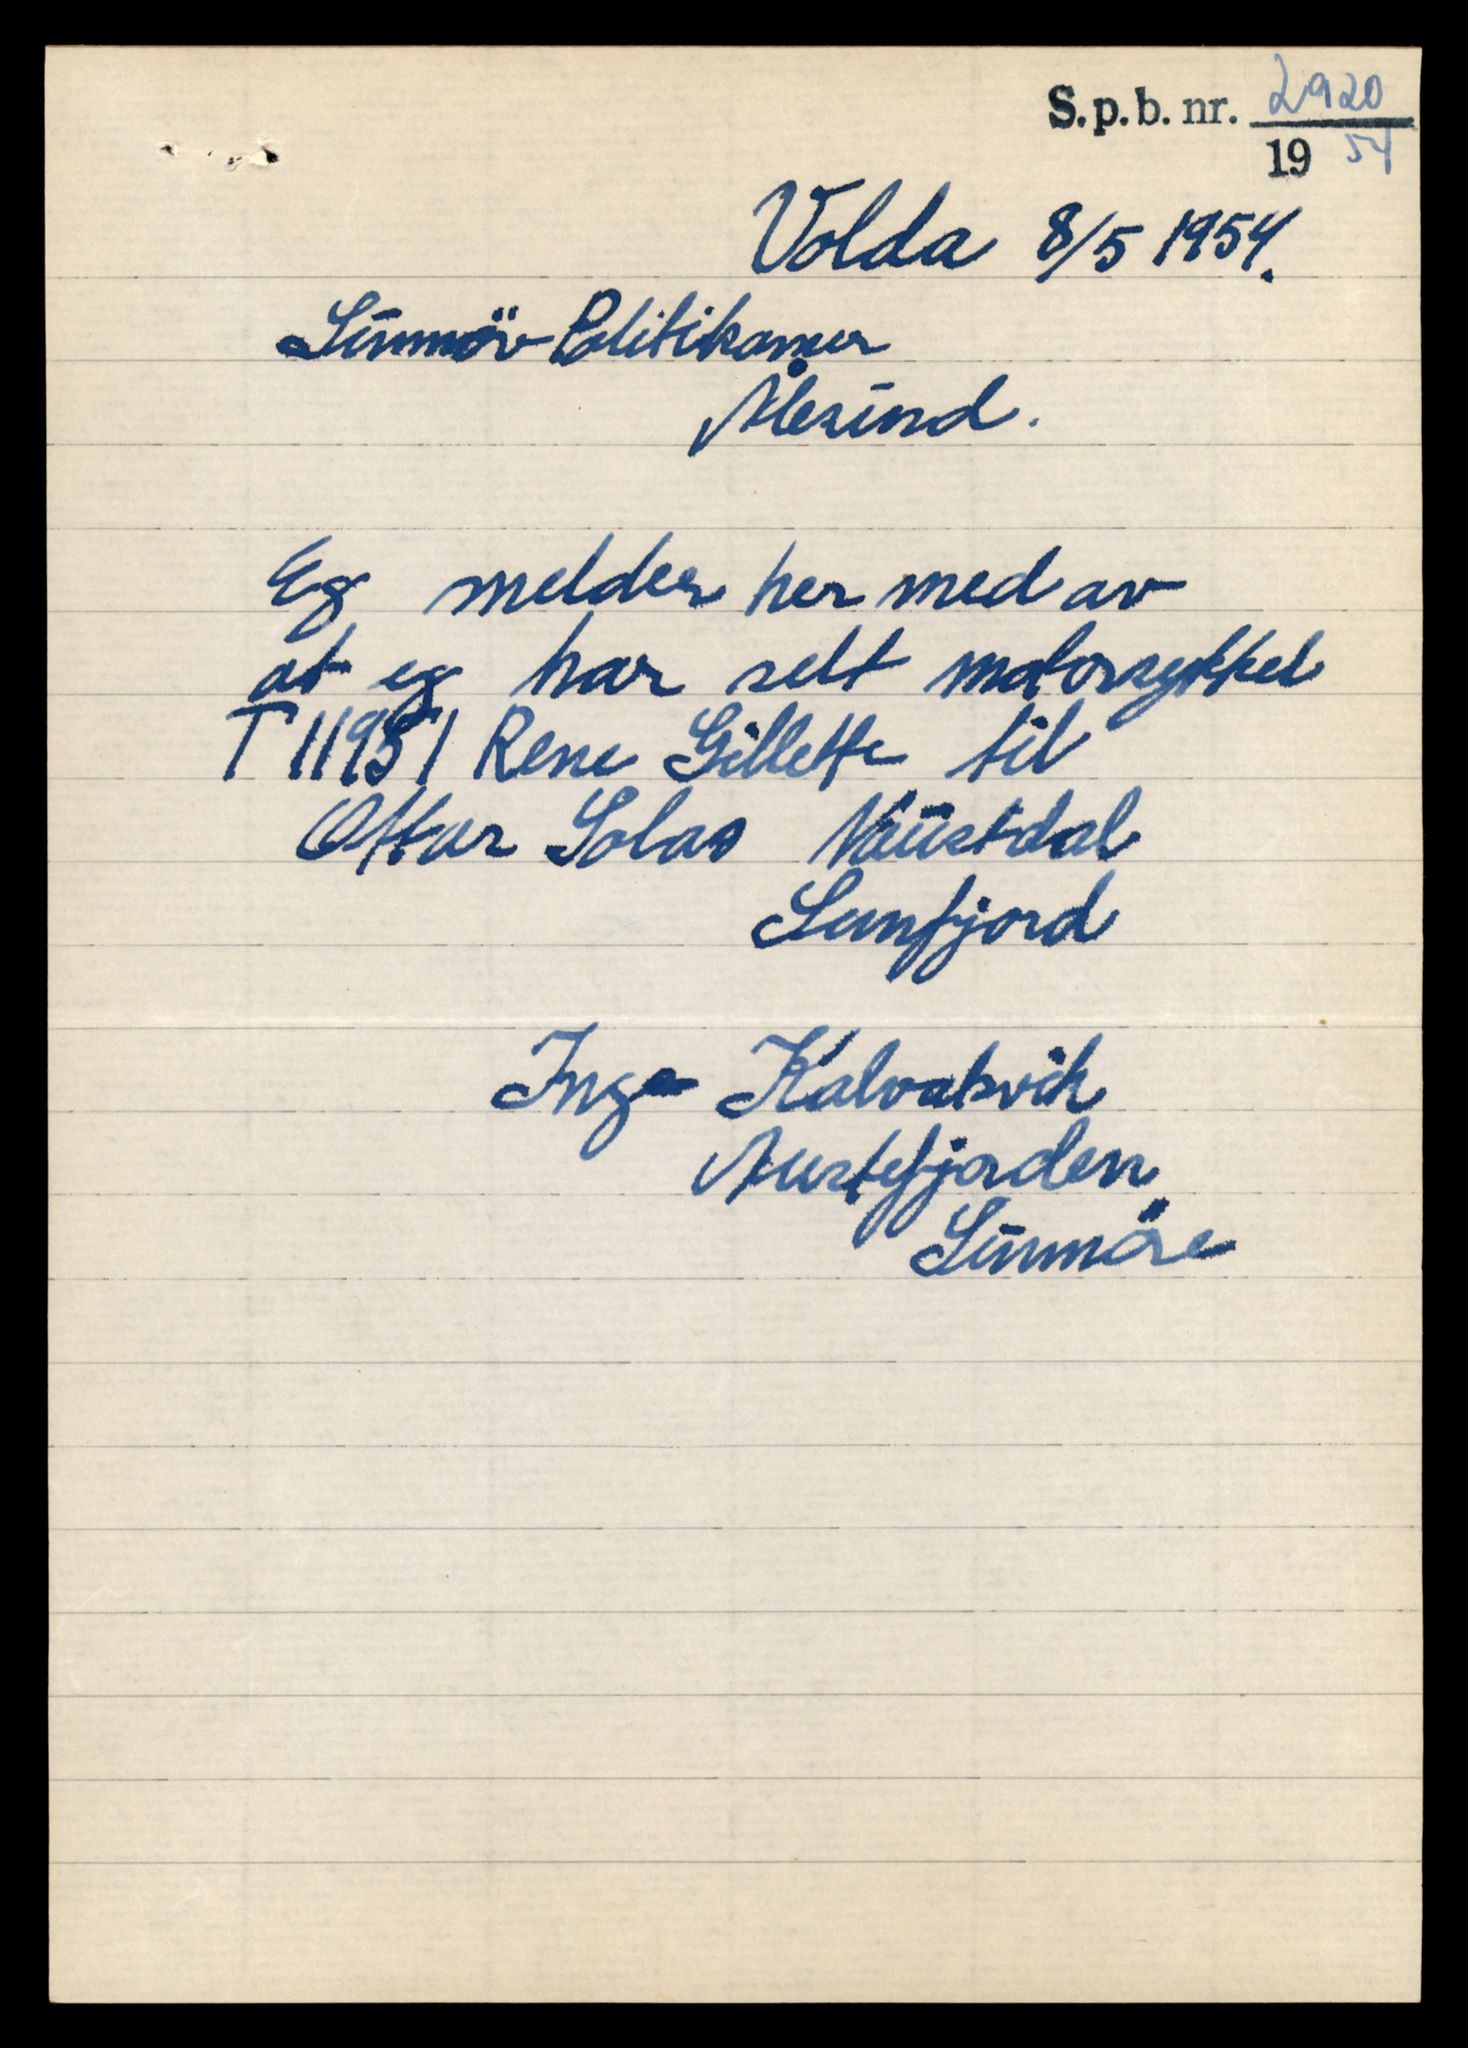 S.p.b. nr. 2920
19 54
Volda 8/5 1954.
Sunmör Politikamer
Ålesund.
Eg melder her med av
at eg har selt motorsykkel
T 11951 Rene Gillette til
Ottar Solas Naustdal
Sunfjord
Inge Kalvatsvik
Austefjorden
Sunmöre